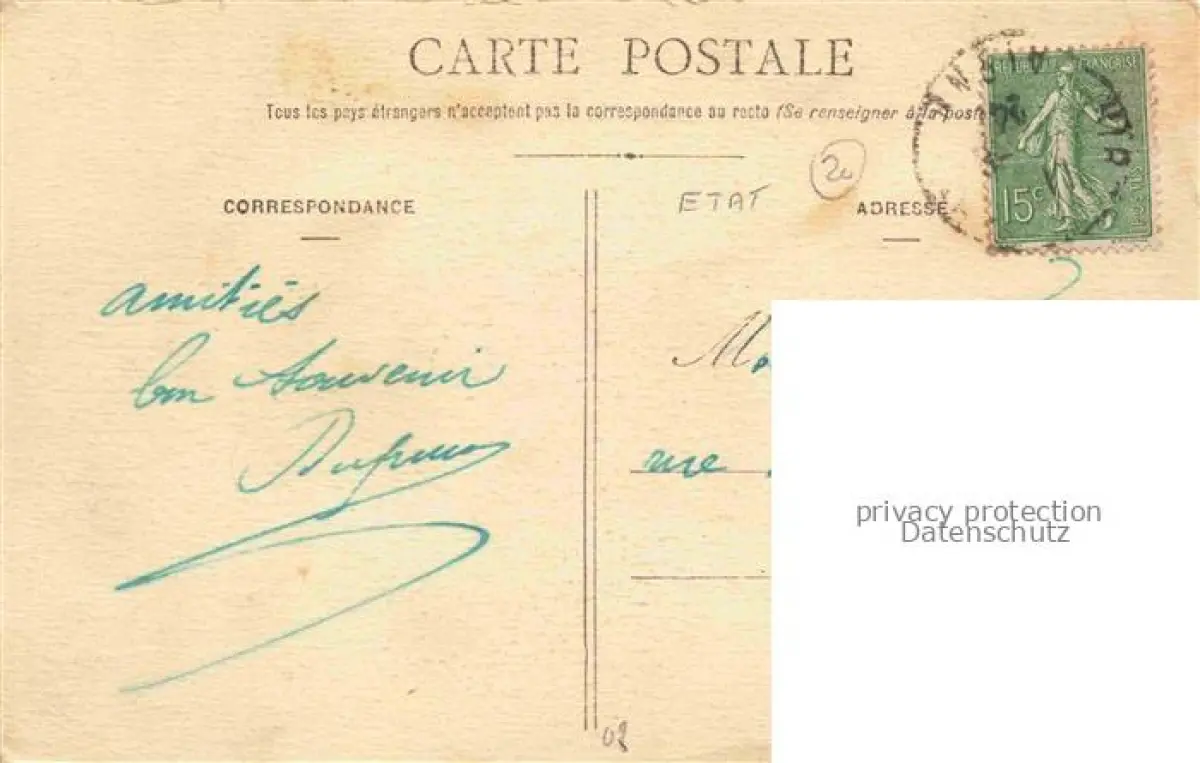 CARTE POSTALE
Tous les pays étrangers n'acceptent pas la correspondance au recto (Se renseigner à la poste
RÉPUBLIQUE FRANÇAISE
15c
ETAT
CORRESPONDANCE
ADRESSE
amitiés
bon souvenir
rue
privacy protection
Datenschutz
02